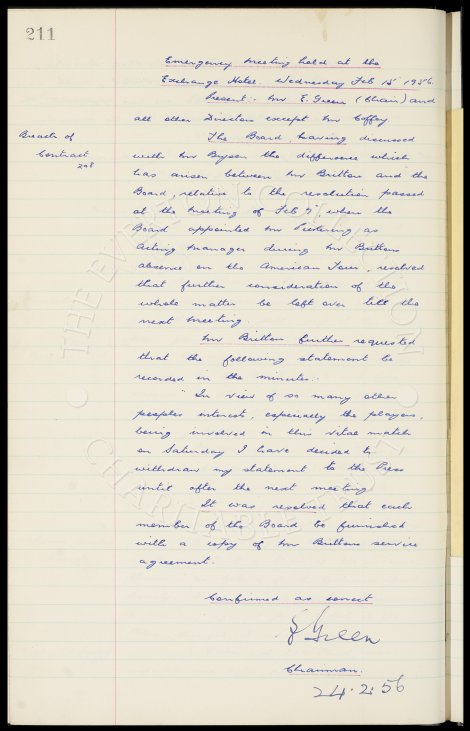 211
Emergency meeting held at the
Exchange Hotel. Wednesday Feb 15 1956.
Present. Mr E. Green (Chair) and
all other Directors except Mr Coffey
Breach of
Contract
208
The Board, having discussed
with Mr Byson the difference which
has arisen between Mr Britton and the
Board, relative to the resolution passed
at the meeting of Feb 9, when the
Board appointed Mr Pickering as
Acting Manager during Mr Brittons
absence on the American Tour, resolved
that further consideration of the
whole matter be left over till the
next meeting.
Mr Britton further requested
that the following statement be
recorded in the minutes:
"In view of so many other
peoples interests, especially the players,
being involved in this vital match
on Saturday I have decided to
withdraw my statement to the Press
until after the next meeting
It was resolved that each
member of the Board be furnished
with a copy of Mr Brittons service
agreement.
Confirmed as correct
E Green
Chairman.
24.2.56
THE EVERTON COLLECTION
CHARITABLE TRUST